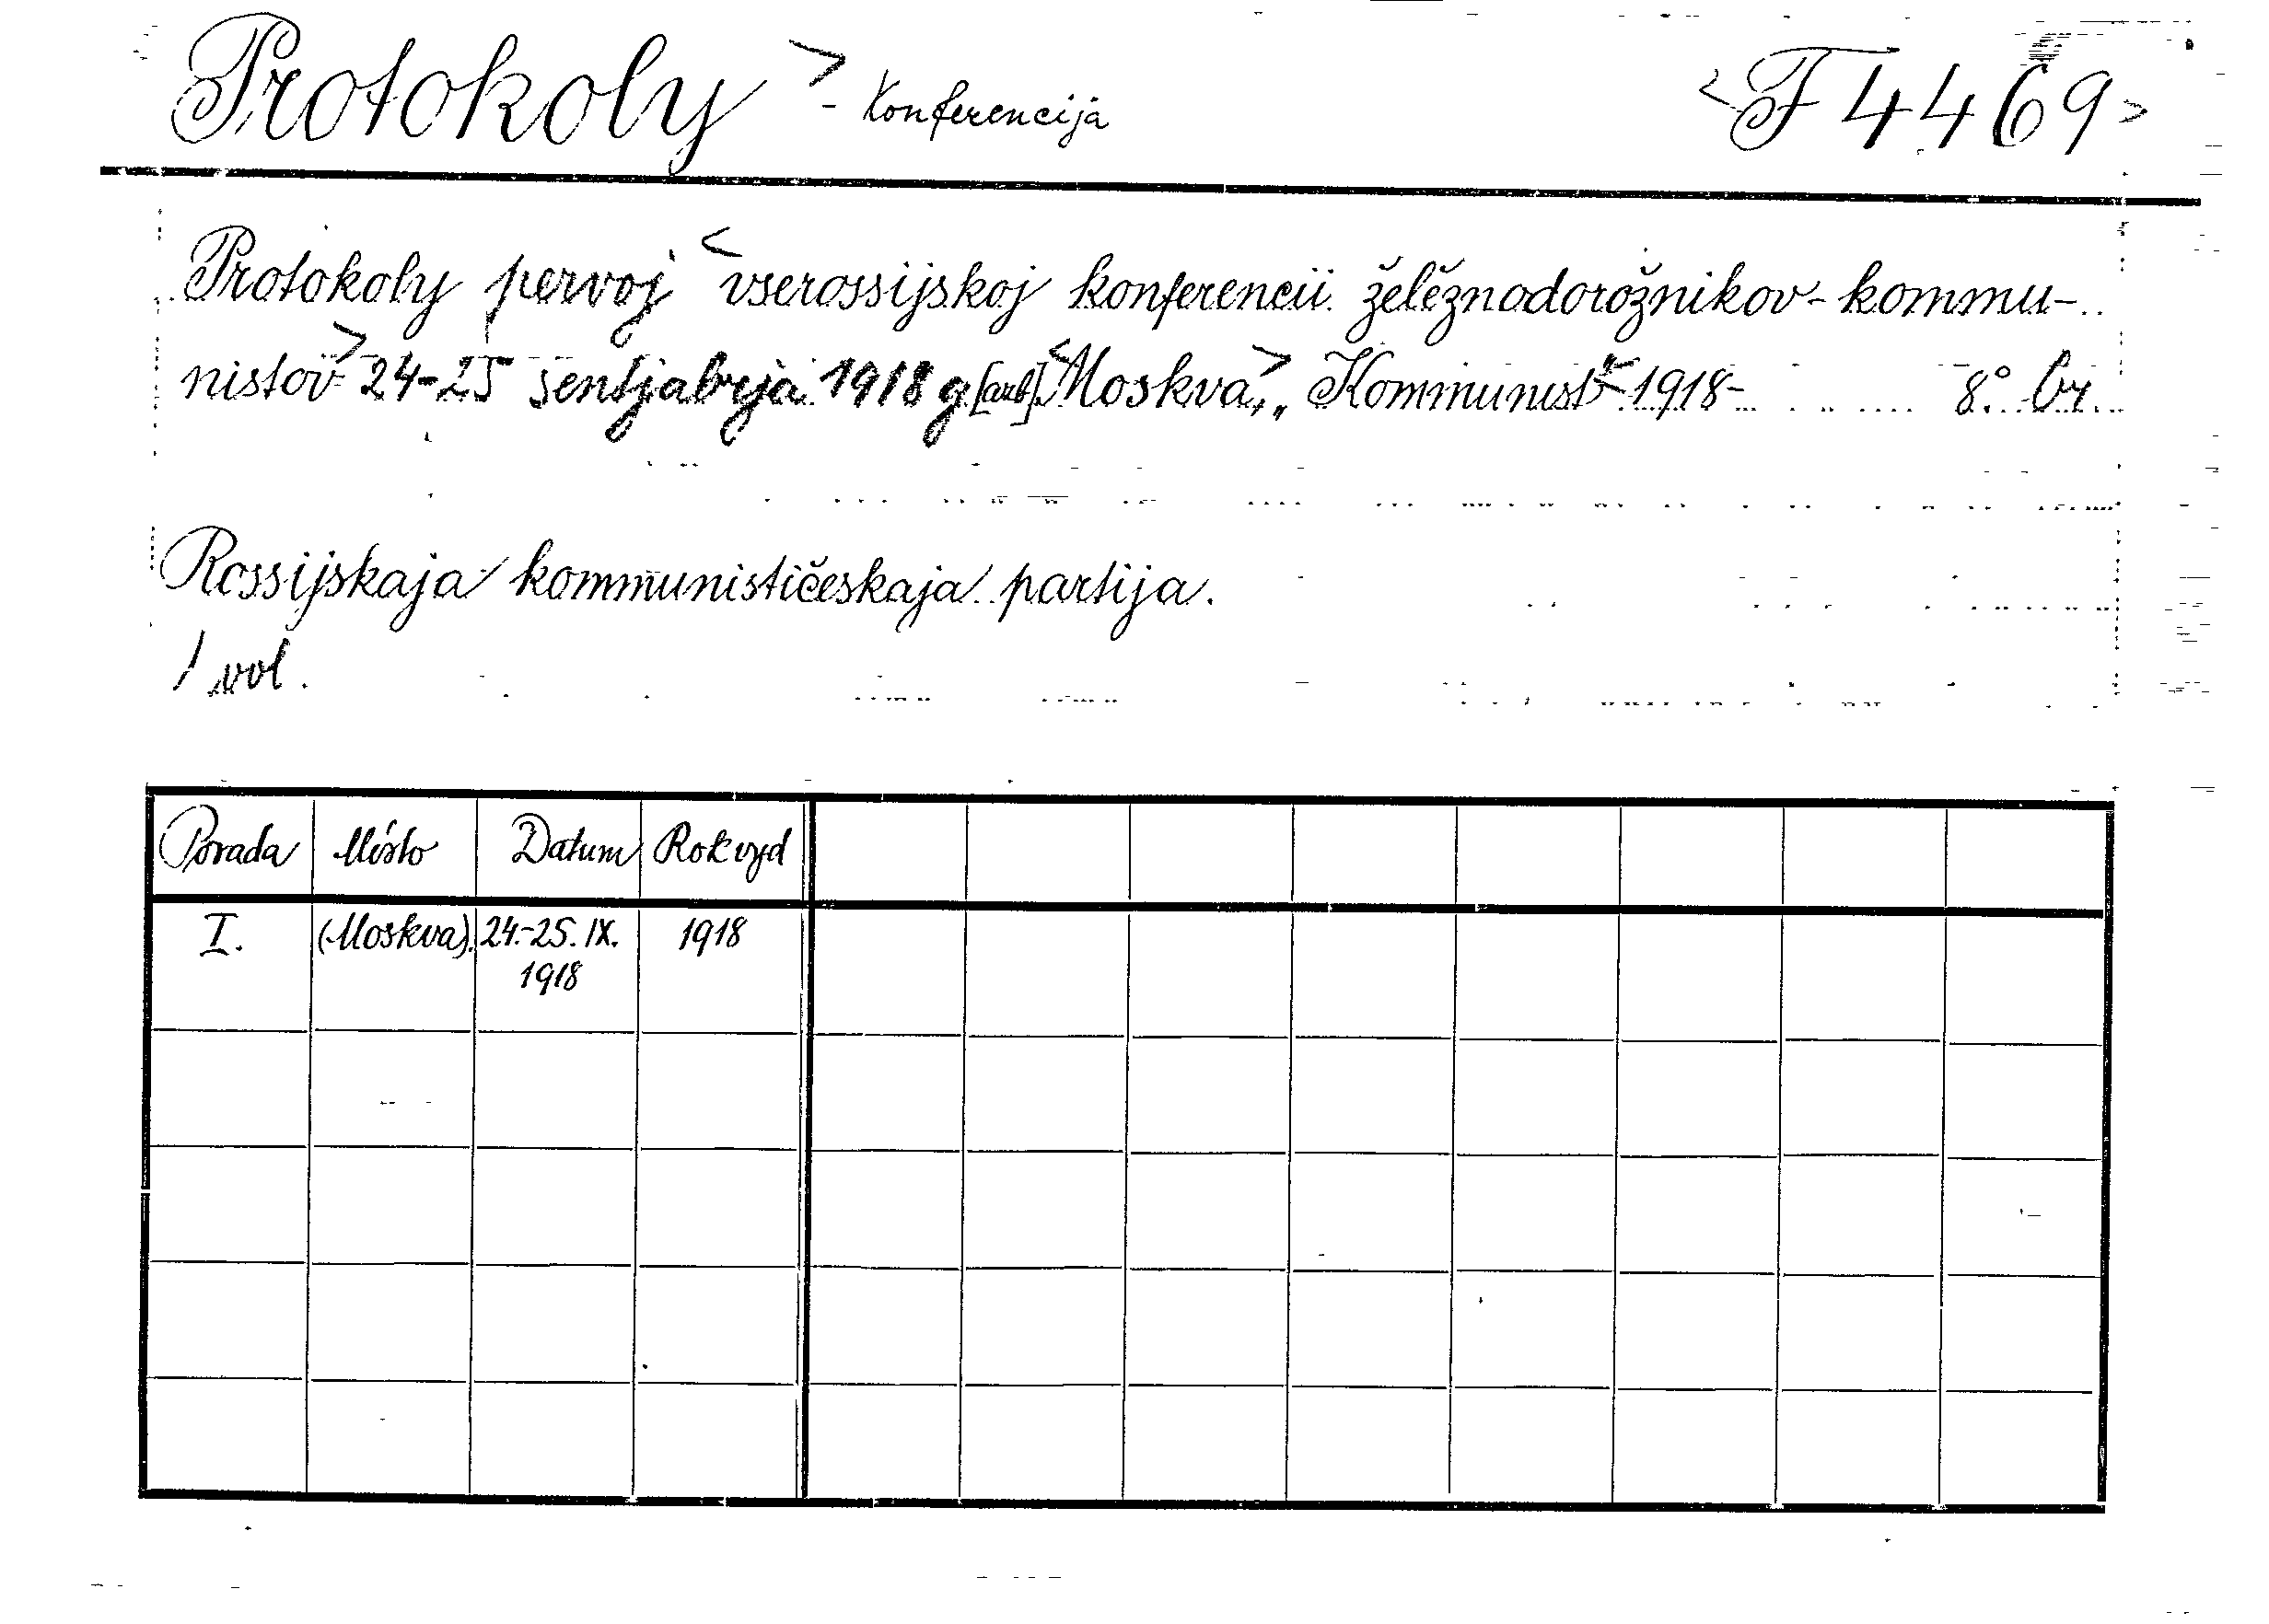 Protokoly > - Konferencija <F 4469>
Protokoly pervoj <vserossijskoj konferencii želěznodorožnikov-kommu-
nistov> 24-25 sentjabrja 1918 g. [azb]. <Moskva>, „Kommunist" 1918- 8° br.
Rossijskaja kommunističeskaja partija.
1 vol.
Porada Místo Datum Rok vyd
I. (Moskva). 24.-25. IX. 1918
1918